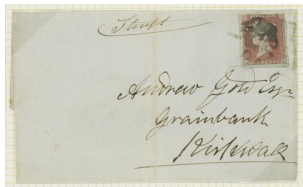 Andrew Gold Esqr
Grainbank
Kirkwall